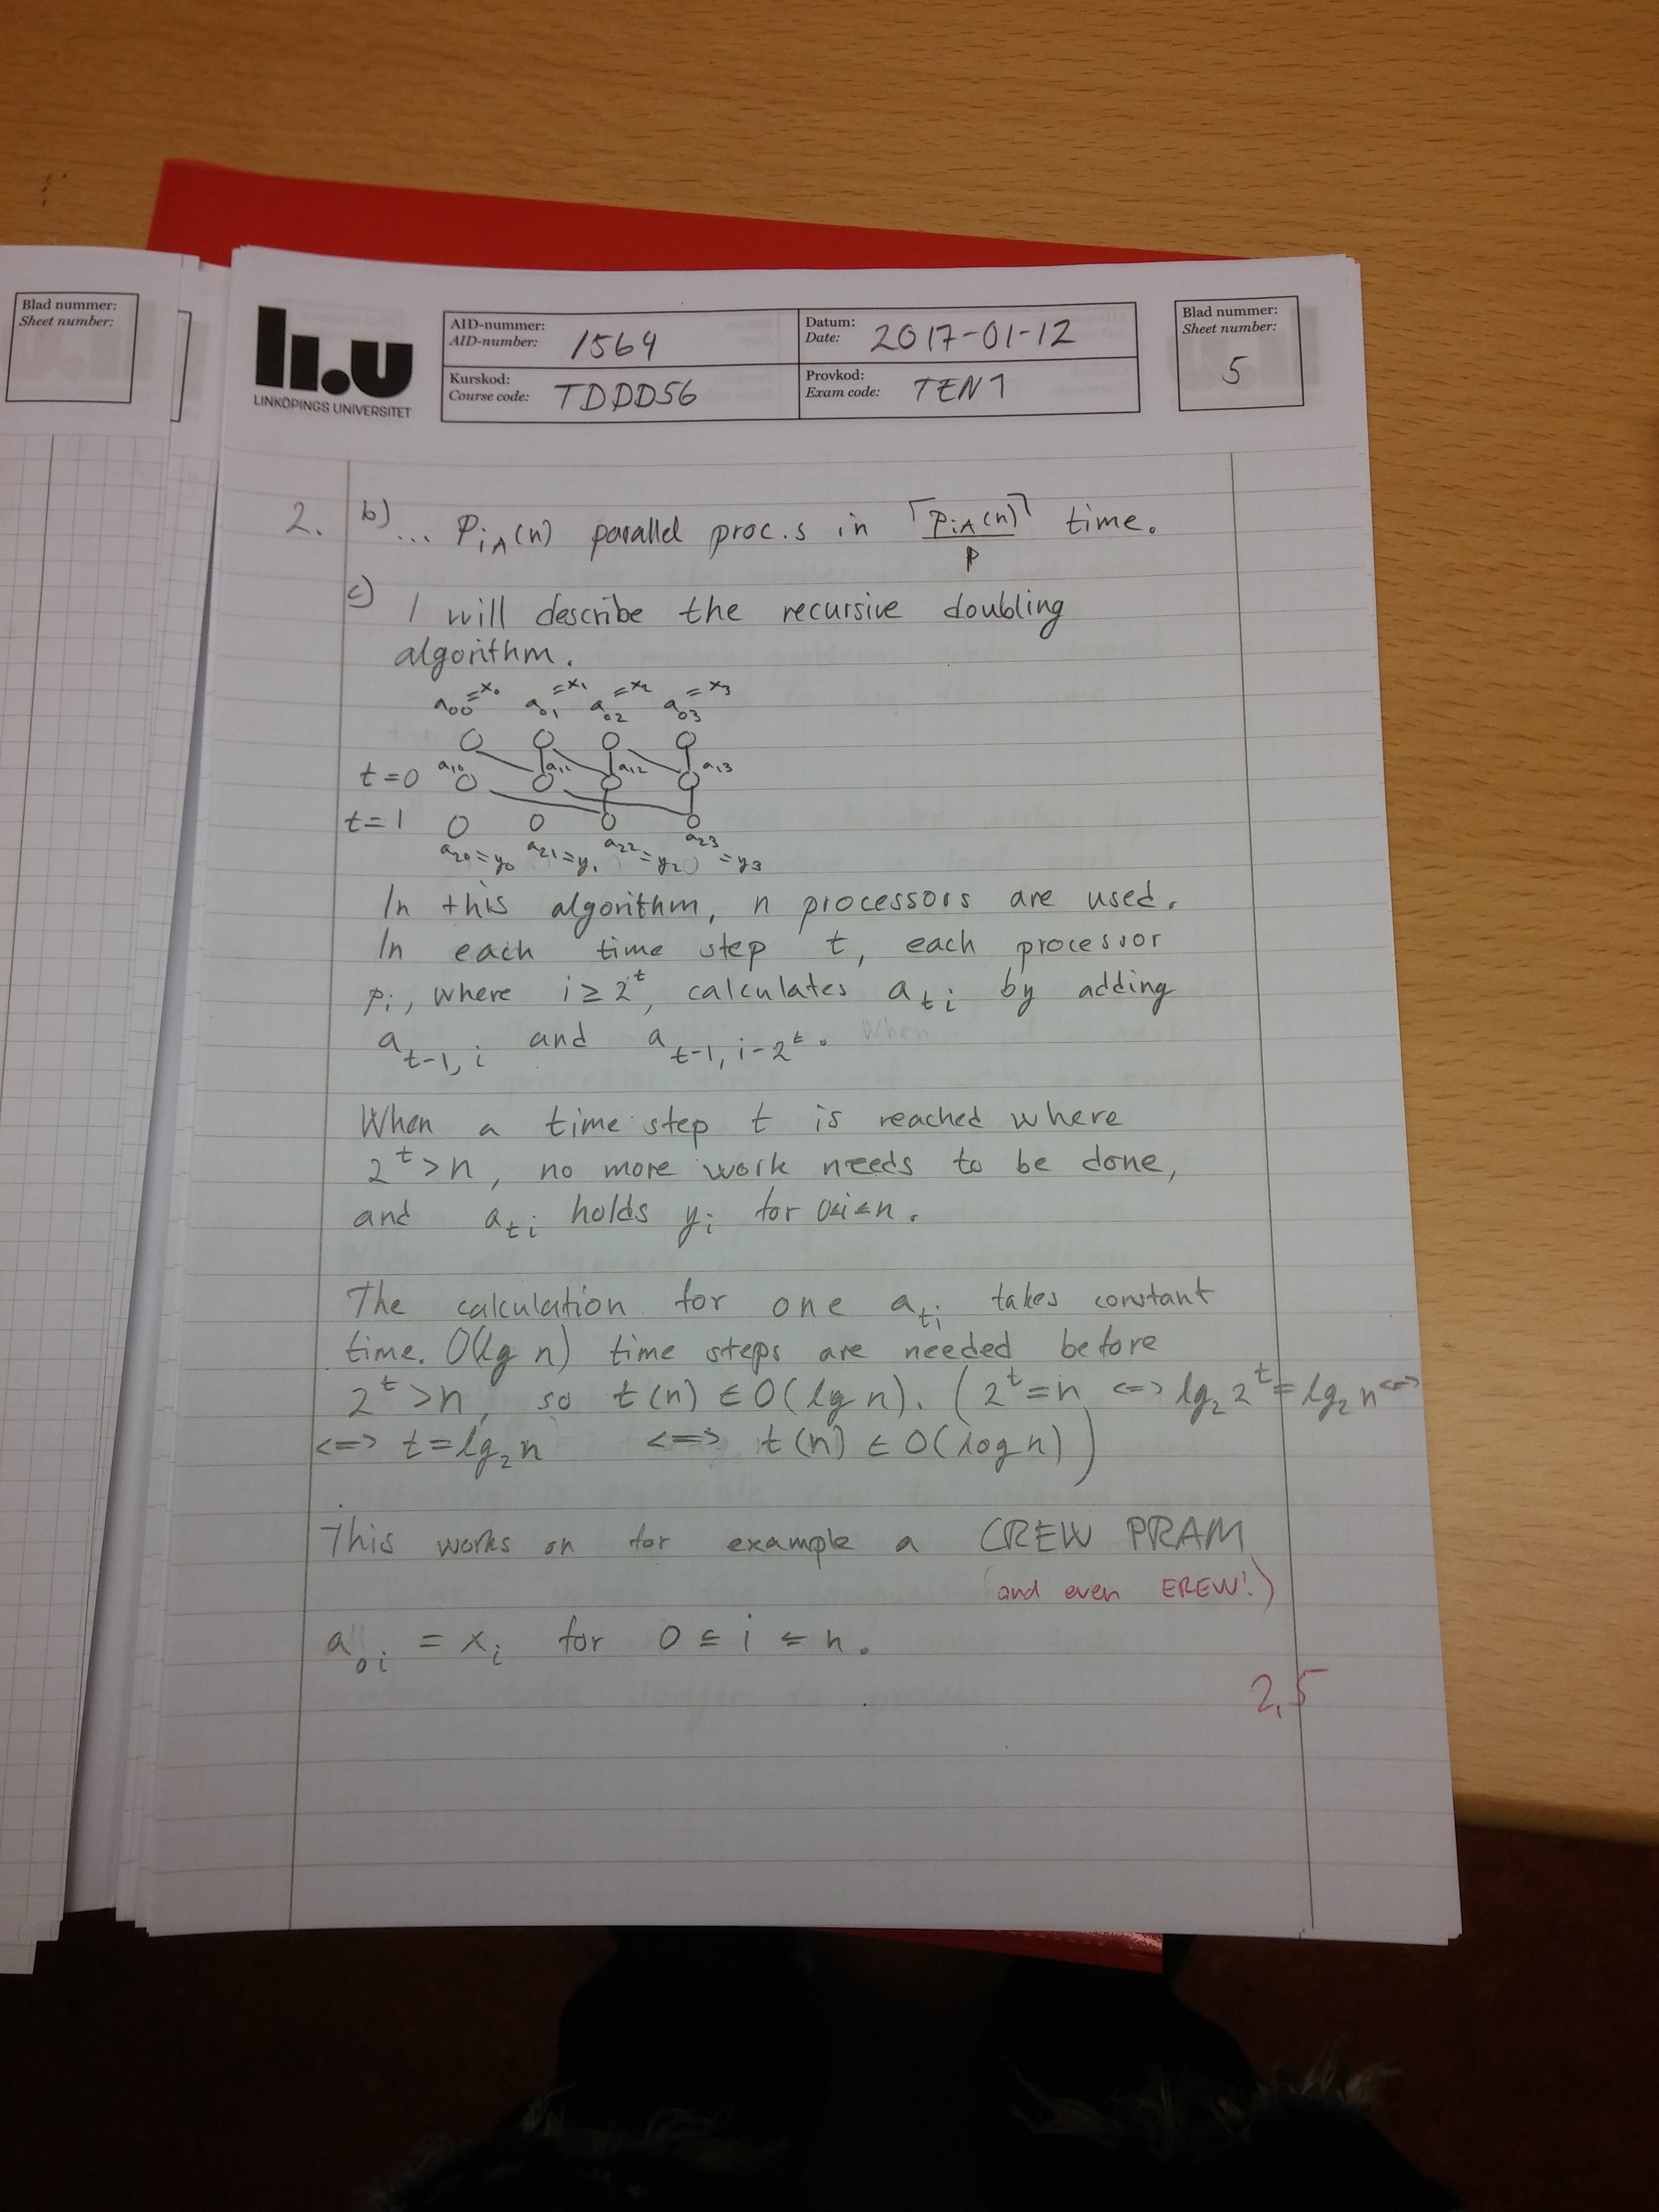 Blad nummer:
Sheet number:
LINKÖPINGS UNIVERSITET
AID-nummer:
AID-number: 1564
Datum:
Date: 2017-01-12
Kurskod:
Course code: TDDD56
Provkod:
Exam code: TEN1
Blad nummer:
Sheet number:
5
2. b) ... PiA(n) parallel proc.s in ⌈PiA(n)/p⌉ time.
c) I will describe the recursive doubling
algorithm.
a00=x0 a01=x1 a02=x2 a03=x3
t=0 a10 a11 a12 a13
t=1
a20=y0 a21=y1 a22=y2 a23=y3
In this algorithm, n processors are used.
In each time step t, each processor
pi, where i≥2^t, calculates a_ti by adding
a_t-1,i and a_t-1,i-2^t. When
When a time step t is reached where
2^t>n, no more work needs to be done,
and a_ti holds yi for 0≤i≤n.
The calculation for one a_ti takes constant
time. O(lg n) time steps are needed before
2^t>n, so t(n)∈O(lg n). (2^t=n <=> lg₂2^t=lg₂n <=>
<=> t=lg₂n <=> t(n)∈O(log n))
This works on for example a CREW PRAM
(and even EREW!)
a_0i = xi for 0≤i≤n.
2,5